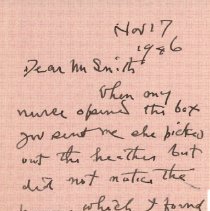 Nov 17
1926
Dear Mr Smith
When my
nurse opened the box
you sent me she picked
out the heather but
did not notice the
which I found